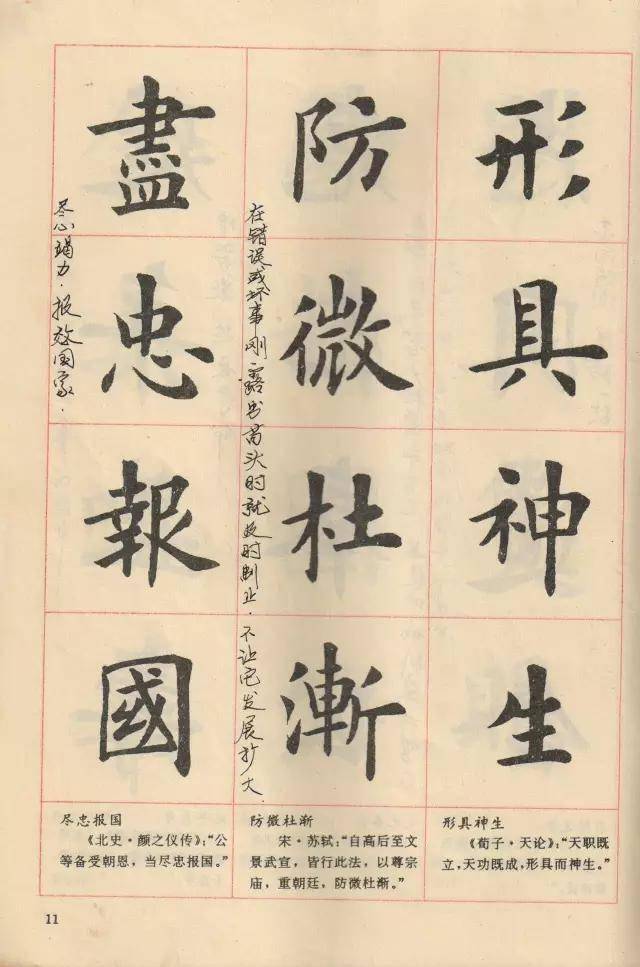 形具神生
防微杜渐
在错误或坏事刚露出苗头时就及时制止.不让它发展扩大.
盡忠報國
尽心竭力.报效国家.
形具神生
《荀子·天论》:“天职既
立,天功既成,形具而神生。”
防微杜渐
宋·苏轼:“自高后至文
景武宣,皆行此法,以尊宗
庙,重朝廷,防微杜渐。”
尽忠报国
《北史·颜之仪传》:“公
等备受朝恩,当尽忠报国。”
11